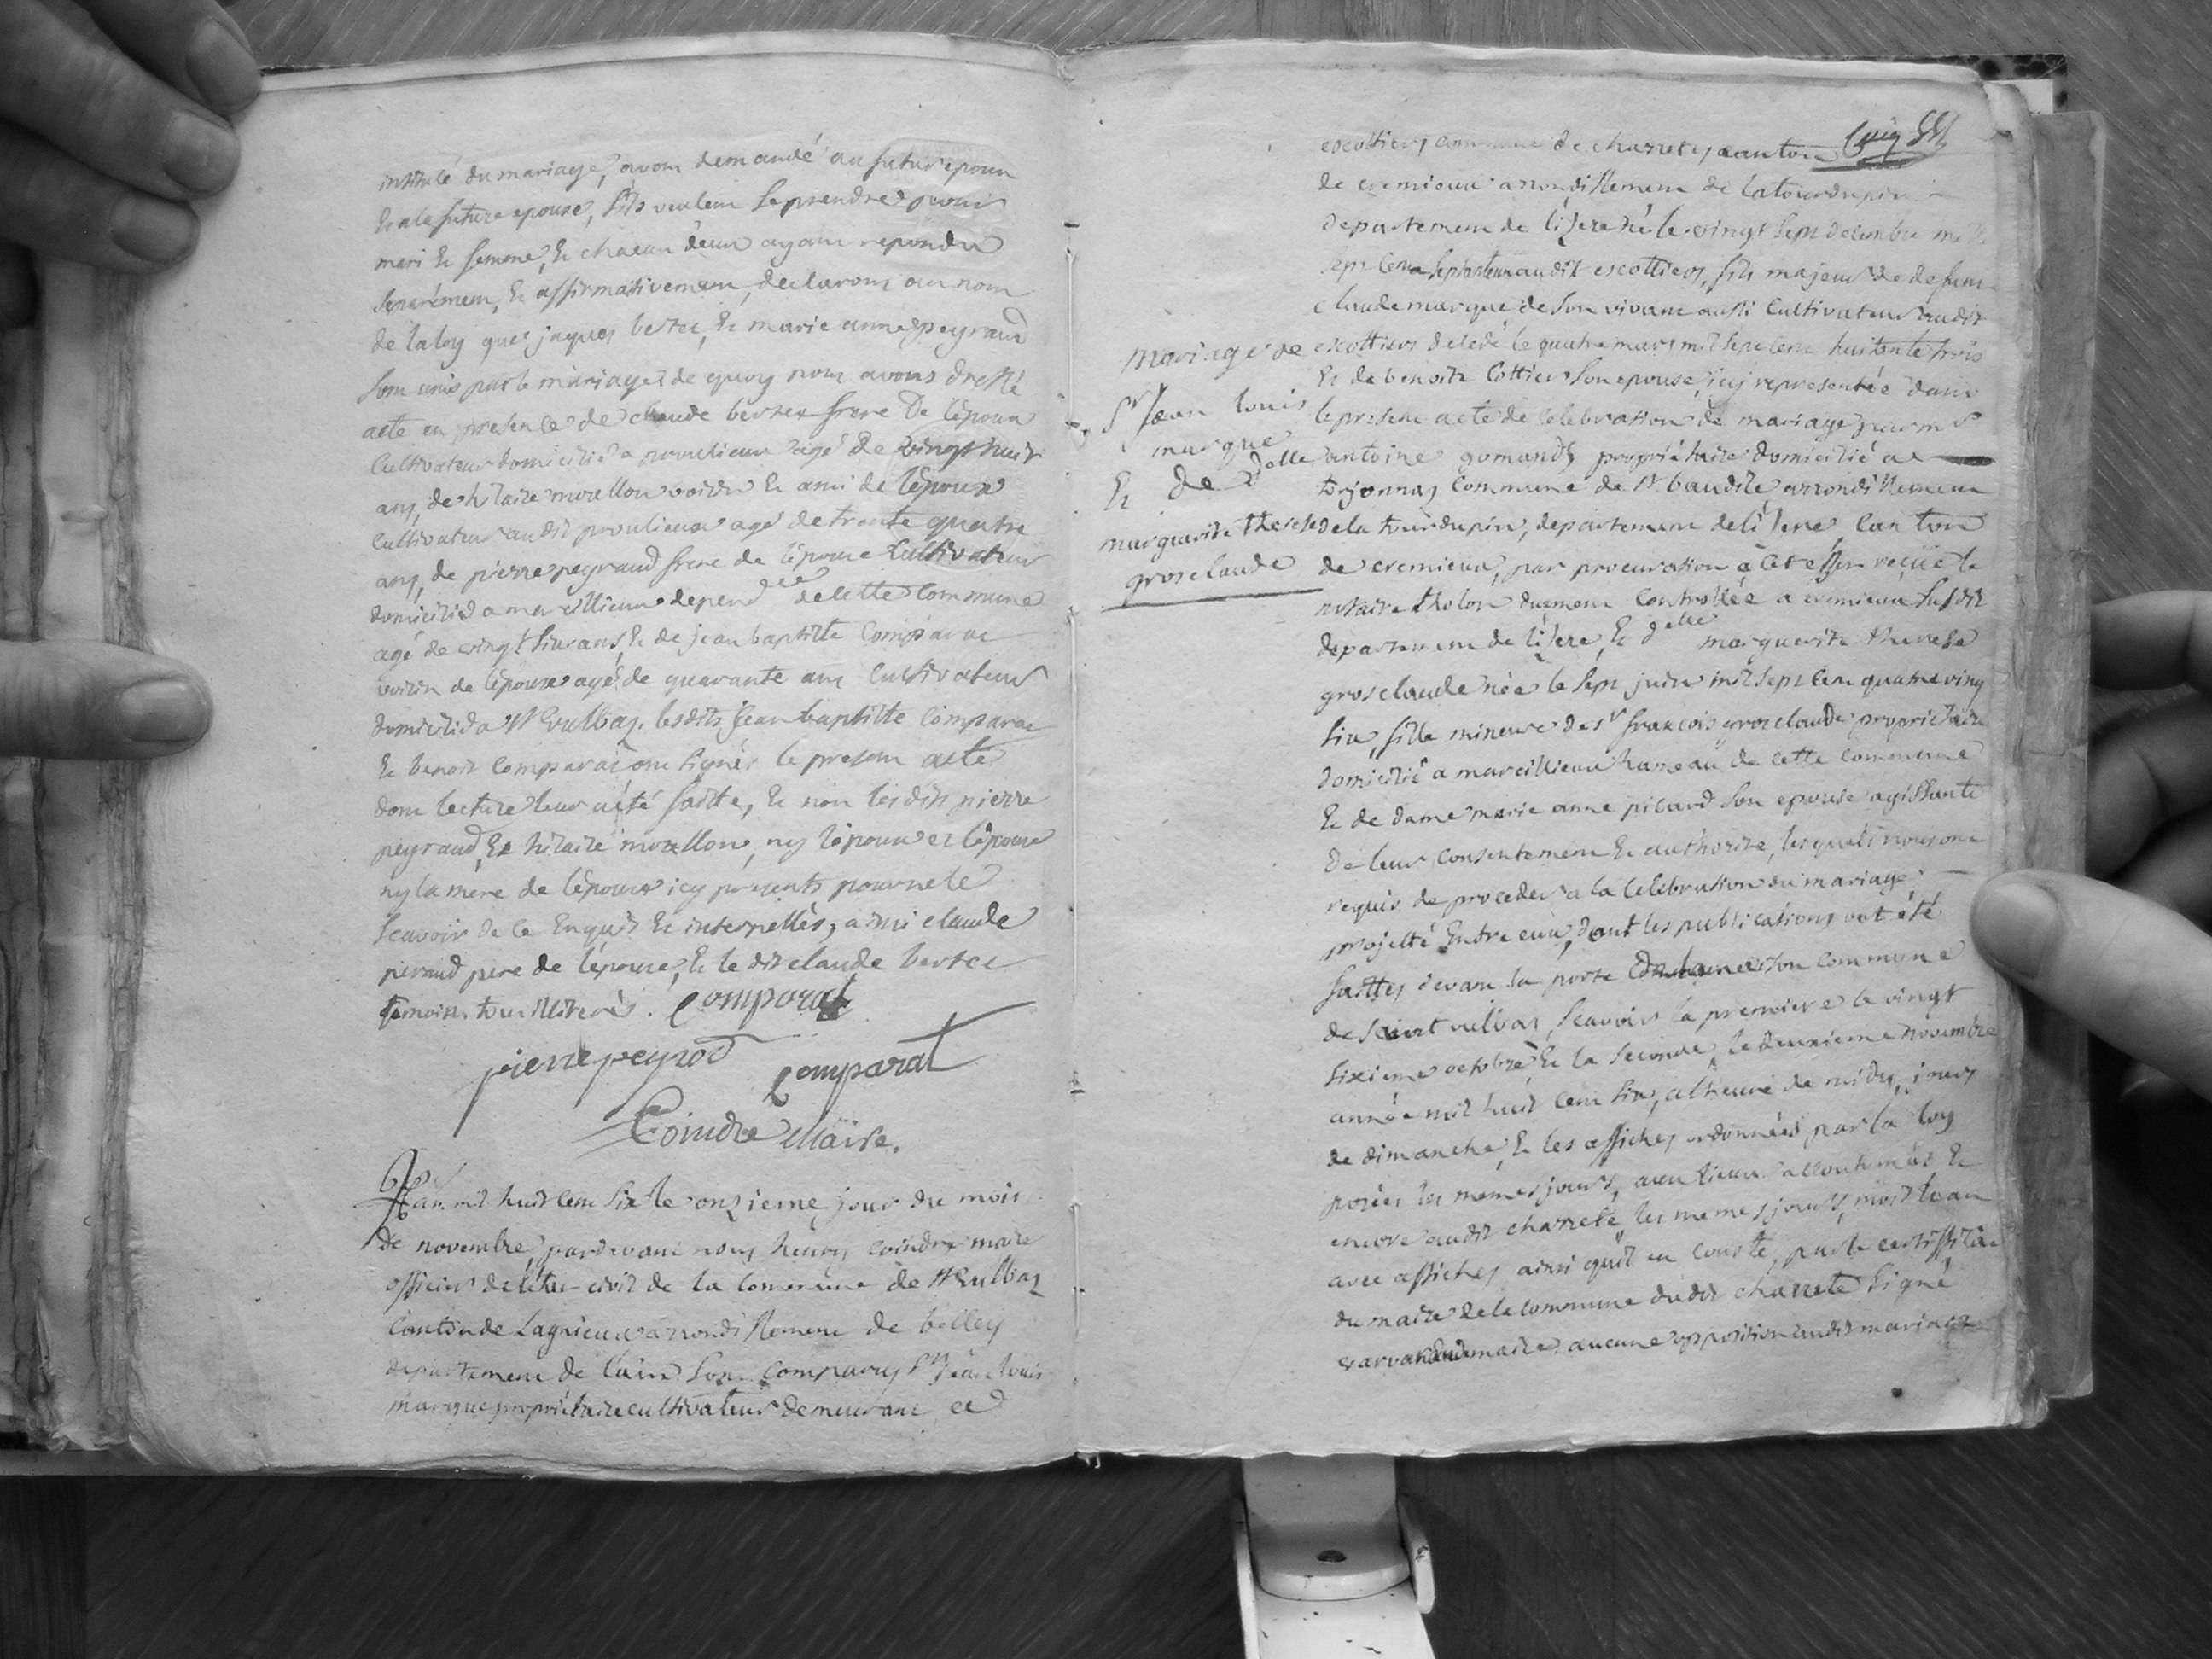 intitulé du mariage, avons demandé au futur epoux
Et a la future epouse, sils veulent se prendre pour
mari Et femme, Et chacun deux ayant repondu
separément, Et affirmativement, declarons au nom
de la loy que jaques berter, Et marie anne peyraud
sont unis par le mariage de quoy nous avons dressé
acte en presence de claude berter frere De lépoux
Cultivateur domicilié a proulieux agé de vingt huit
ans, de hilaire morellon voisin Et ami de lépoux
Cultivateur audit proulieux agé de trente quatre
ans, de pierre peyraud frere de lépouse Cultivateur
domicilié a marcillieux depend ce de cette Commune
agé de vingt six ans, Et de jean baptiste Comparat
voisin de lépouse agé de quarante ans Cultivateur
domicilié a St Vulbas. lesdits Jean baptiste Comparat
Et benoit Comparat ont signés le present acte
dont lecture leur a été faitte, Et non lesdits pierre
peyraud, Et hilaire morellon, ny lépoux et lépouse
ny la mere de lépoux icy présents pour ne le
scavoir de ce Enquis Et interpellés, ainsi claude
peraud pere de lépouse, Et le dit claude berter
temoins tous illiterés. Comparat
pierre peyrod Comparat
Coindre Maire.
Lan mil huit cent six le onzieme jour du mois
de novembre, pardevant nous henry coindre maire
officier de létat civil de la Commune de St Vulbas
Canton de Lagnieux arrondissement de belley
departement de lain sont comparus Sr jean louis
marque propriétaire cultivateur demeurant a
escottiers commune de charrettes canton
de cremieux arrondissement de latourdupin
departement de lizere né le vingt sept decembre mil
sept cent audit escottiers, fils majeur de defunt
claude marque de son vivant aussi Cultivateur audit
escottiers decedé le quatre mars mil sept cent huitante trois
Et de benoite Cottier son epouse, icy representée dans
le present acte de celebration de mariage par mr
antoine gomand propriétaire domicilié a
torjonnas Commune de St baudile arrondissement
de la tour dupin, departement de lizere, Canton
de cremieux, par procuration a cet effet reçue le
notaire tholon duement Controllée a cremieux susdit
departement de lizere, Et delle marguerite therese
grosclaude née le sept juin mil sept cent quatre ving
six, fille mineure de sr françois grosclaude proprietaire
domicilié a marcillieux hameau de cette commune
Et de dame marie anne picard son epouse agissante
de leur consentement Et authorité, lesquels nous ont
requis de proceder a la celebration du mariage
projetté Entre eux, dont les publications ont été
faittes devant la porte de la maison commune
de Saint vulbas, scavoir la premiere le vingt
sixieme octobre Et la seconde, le deuxieme novembre
année mil huit cent six, a lheure de midy, jours
de dimanche, Et les affiches ordonnées par la loy
posées les memes jours, aux lieux accoutumés Et
encore audit charrete, les memes jours, mois Et an
avec affiches ainsi quil en conste, par le certifficat
du maire de la commune dudit charrete signé
maire. aucune opposition audit mariage
mariage de
Sr Jean louis
marque
Et de delle
marguerite therese
grosclaude